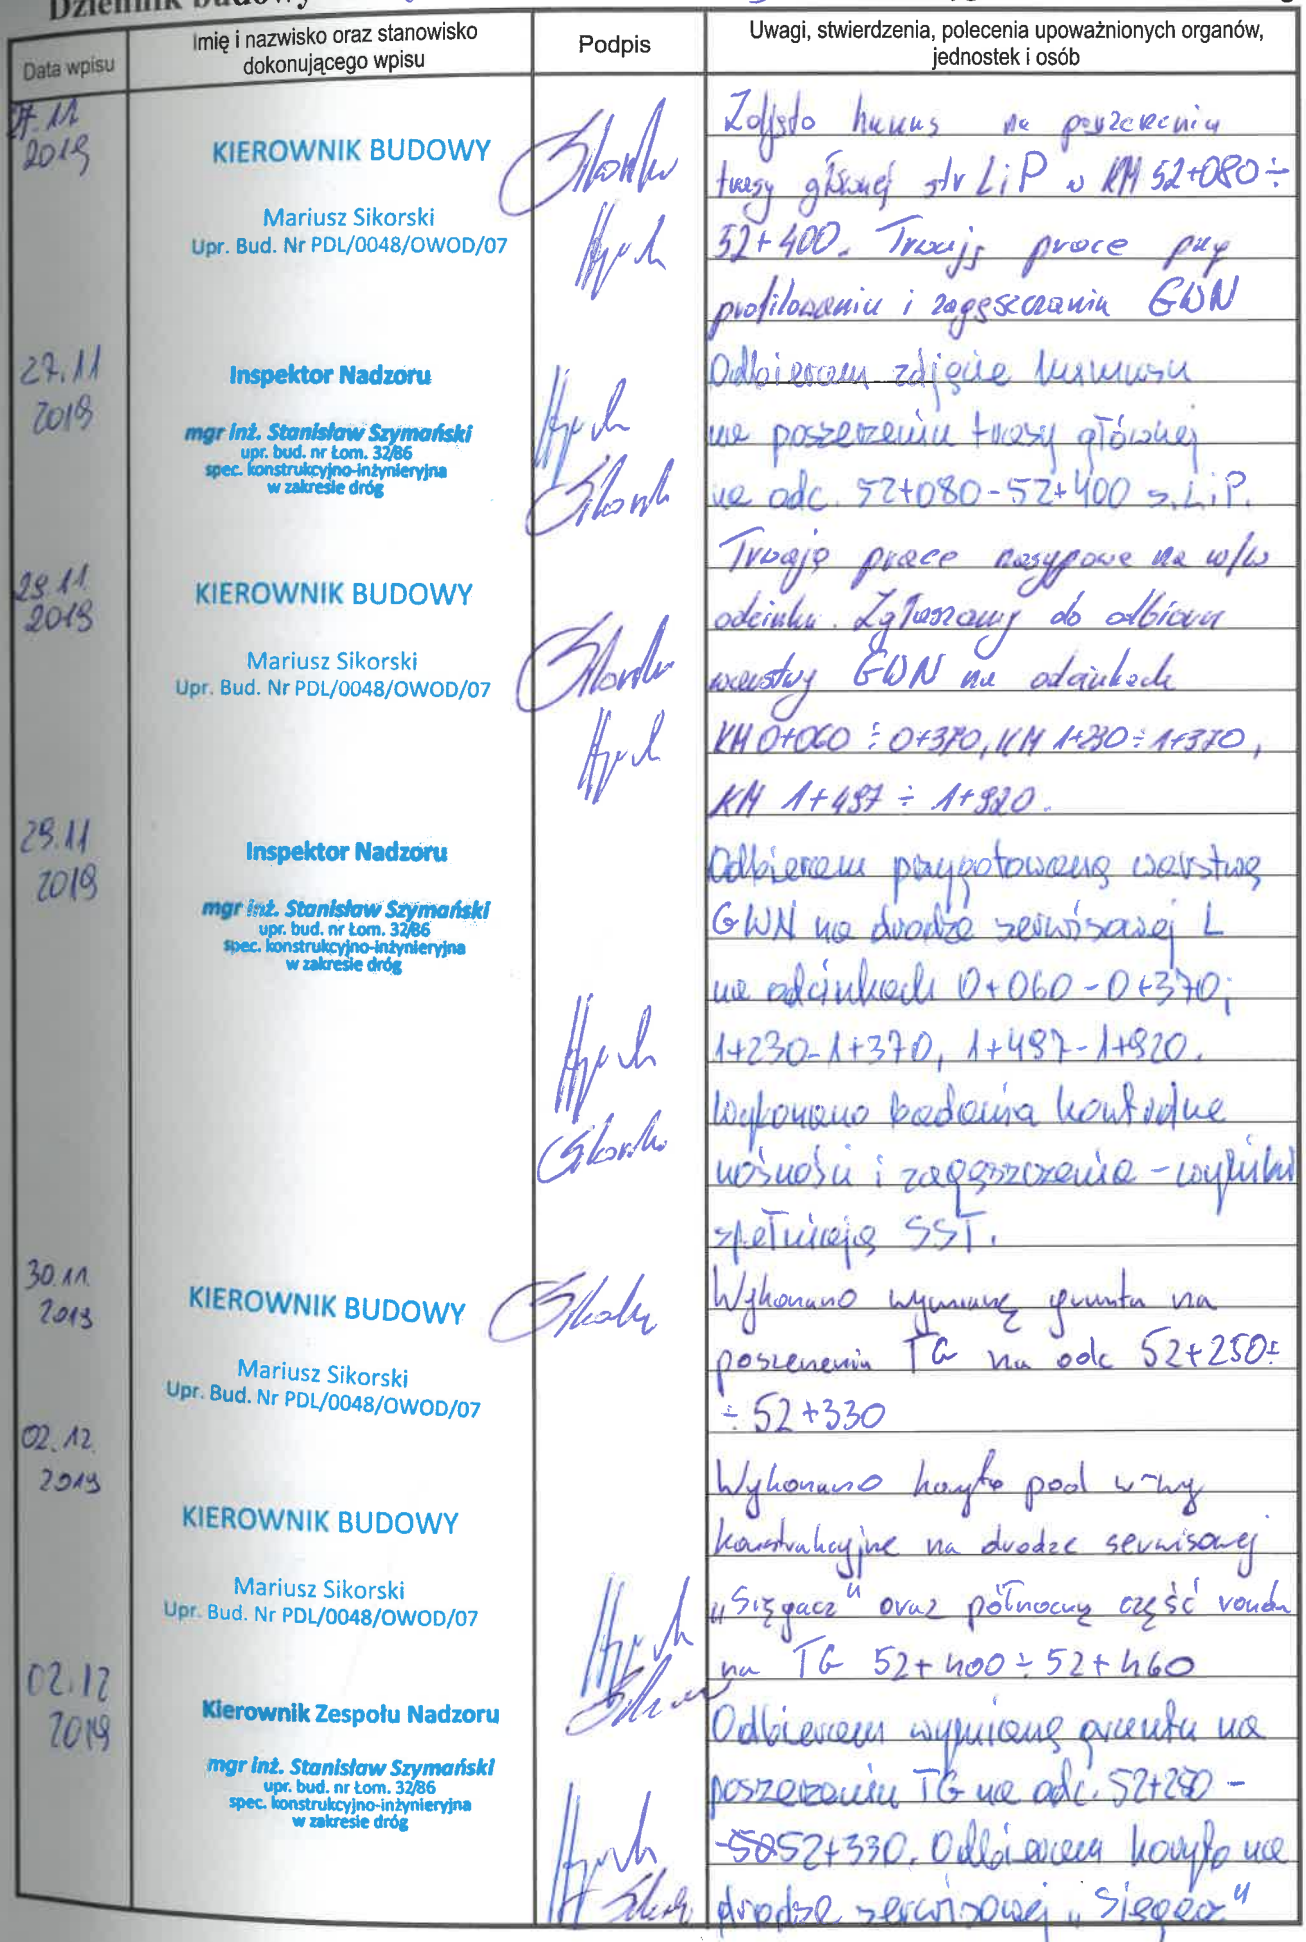 Dziennik budowy
Data wpisu
Imię i nazwisko oraz stanowisko
dokonującego wpisu
Podpis
Uwagi, stwierdzenia, polecenia upoważnionych organów,
jednostek i osób
27.11
2019
KIEROWNIK BUDOWY
Mariusz Sikorski
Upr. Bud. Nr PDL/0048/OWOD/07
Sikorski
Zdjęto humus na poszerzeniu
trasy głównej str L i P w KM 52+080÷
52+400. Trwają prace przy
profilowaniu i zagęszczaniu GWN
27.11
2019
Inspektor Nadzoru
mgr inż. Stanisław Szymański
upr. bud. nr Łom. 32/86
spec. konstrukcyjno-inżynieryjna
w zakresie dróg
Sikorski
Odbieram zdjęcie humusu
na poszerzeniu trasy głównej
na odc. 52+080-52+400 s. L i P.
29.11
2019
KIEROWNIK BUDOWY
Mariusz Sikorski
Upr. Bud. Nr PDL/0048/OWOD/07
Sikorski
Trwają prace nasypowe na w/w
odcinku. Zgłaszamy do odbioru
warstwy GWN na odcinkach
KM 0+060 ÷ 0+370, KM 1+230÷1+370,
KM 1+497 ÷ 1+920.
29.11
2019
Inspektor Nadzoru
mgr inż. Stanisław Szymański
upr. bud. nr Łom. 32/86
spec. konstrukcyjno-inżynieryjna
w zakresie dróg
Sikorski
Odbieram przygotowaną warstwę
GWN na drodze serwisowej L
na odcinkach 0+060-0+370;
1+230-1+370, 1+497-1+920.
Wykonano badania kontrolne
nośności i zagęszczenia - wyniki
spełniają SST.
30.11.
2019
KIEROWNIK BUDOWY
Mariusz Sikorski
Upr. Bud. Nr PDL/0048/OWOD/07
Sikorski
Wykonano wymianę gruntu na
poszerzeniu TG na odc 52+250÷
÷ 52+330
02.12.
2019
KIEROWNIK BUDOWY
Mariusz Sikorski
Upr. Bud. Nr PDL/0048/OWOD/07
Wykonano koryto pod w-wy
konstrukcyjne na drodze serwisowej
„Sięgacz" oraz północną część ronda
na TG 52+400 ÷ 52+460
02.12
2019
Kierownik Zespołu Nadzoru
mgr inż. Stanisław Szymański
upr. bud. nr Łom. 32/86
spec. konstrukcyjno-inżynieryjna
w zakresie dróg
Odbieram wymianę gruntu na
poszerzeniu TG na odc. 52+250 -
-52+330. Odbieram koryto na
drodze serwisowej „Sięgacz"